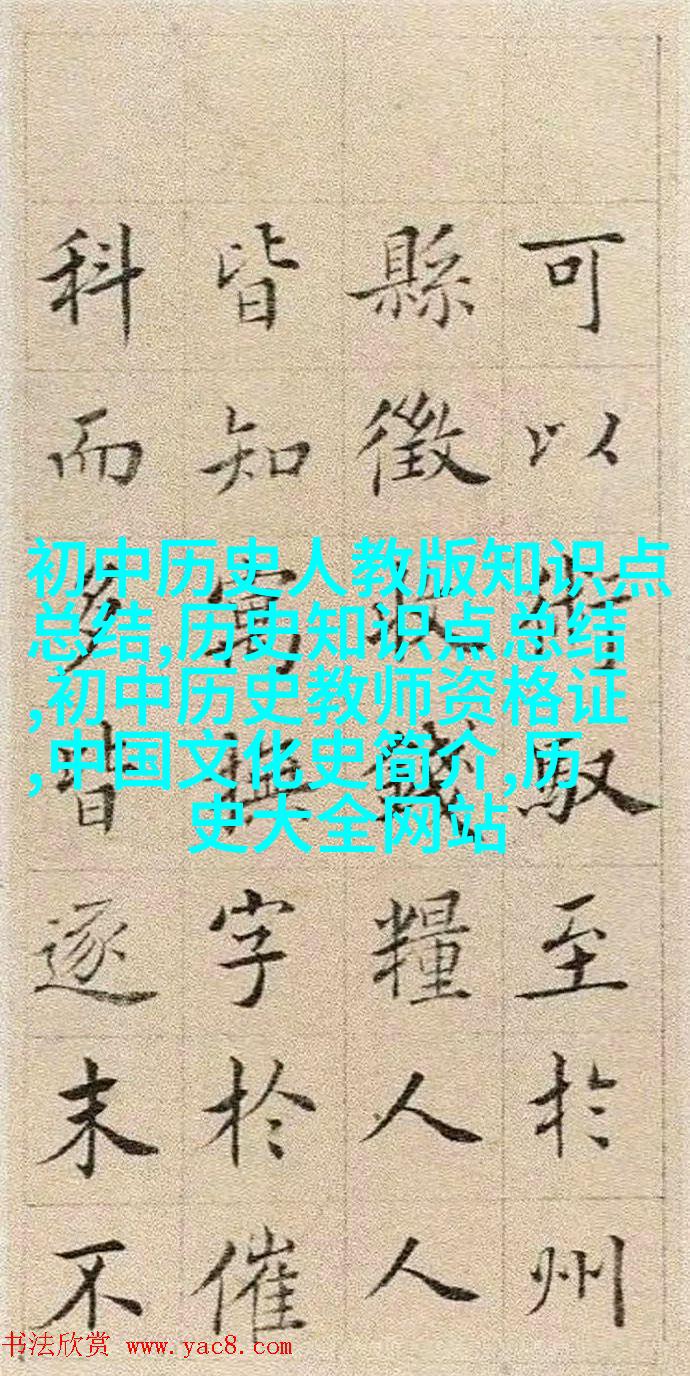 可以馭至於州
縣徵收錢糧人人
皆知寓撫字於催
科而多皆逐末不
初中历史人教版知识点
总结,历史知识点总结
,初中历史教师资格证
,中国文化史简介,历
史大全网站
书法欣赏 www.yac8.com